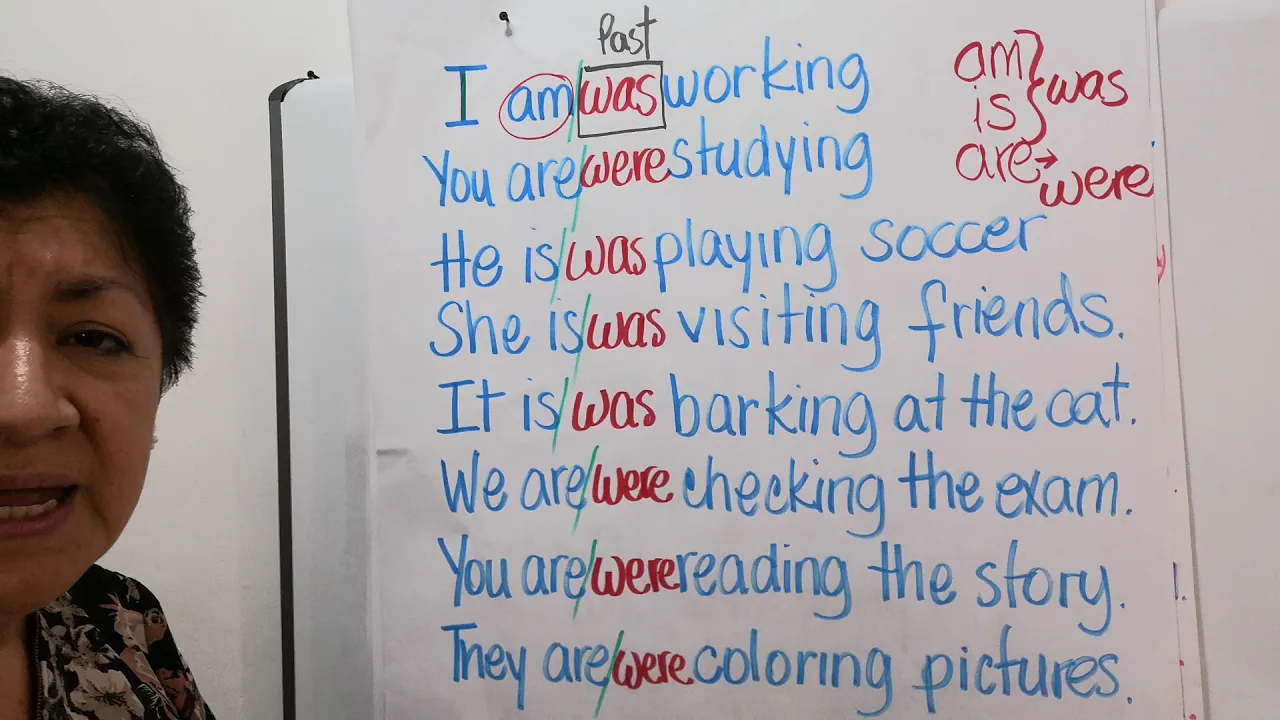 Past
I am/was working
You are/were studying
He is/was playing soccer
She is/was visiting friends.
It is/was barking at the cat.
We are/were checking the exam.
You are/were reading the story.
They are/were coloring pictures.
am
is } was
are → were